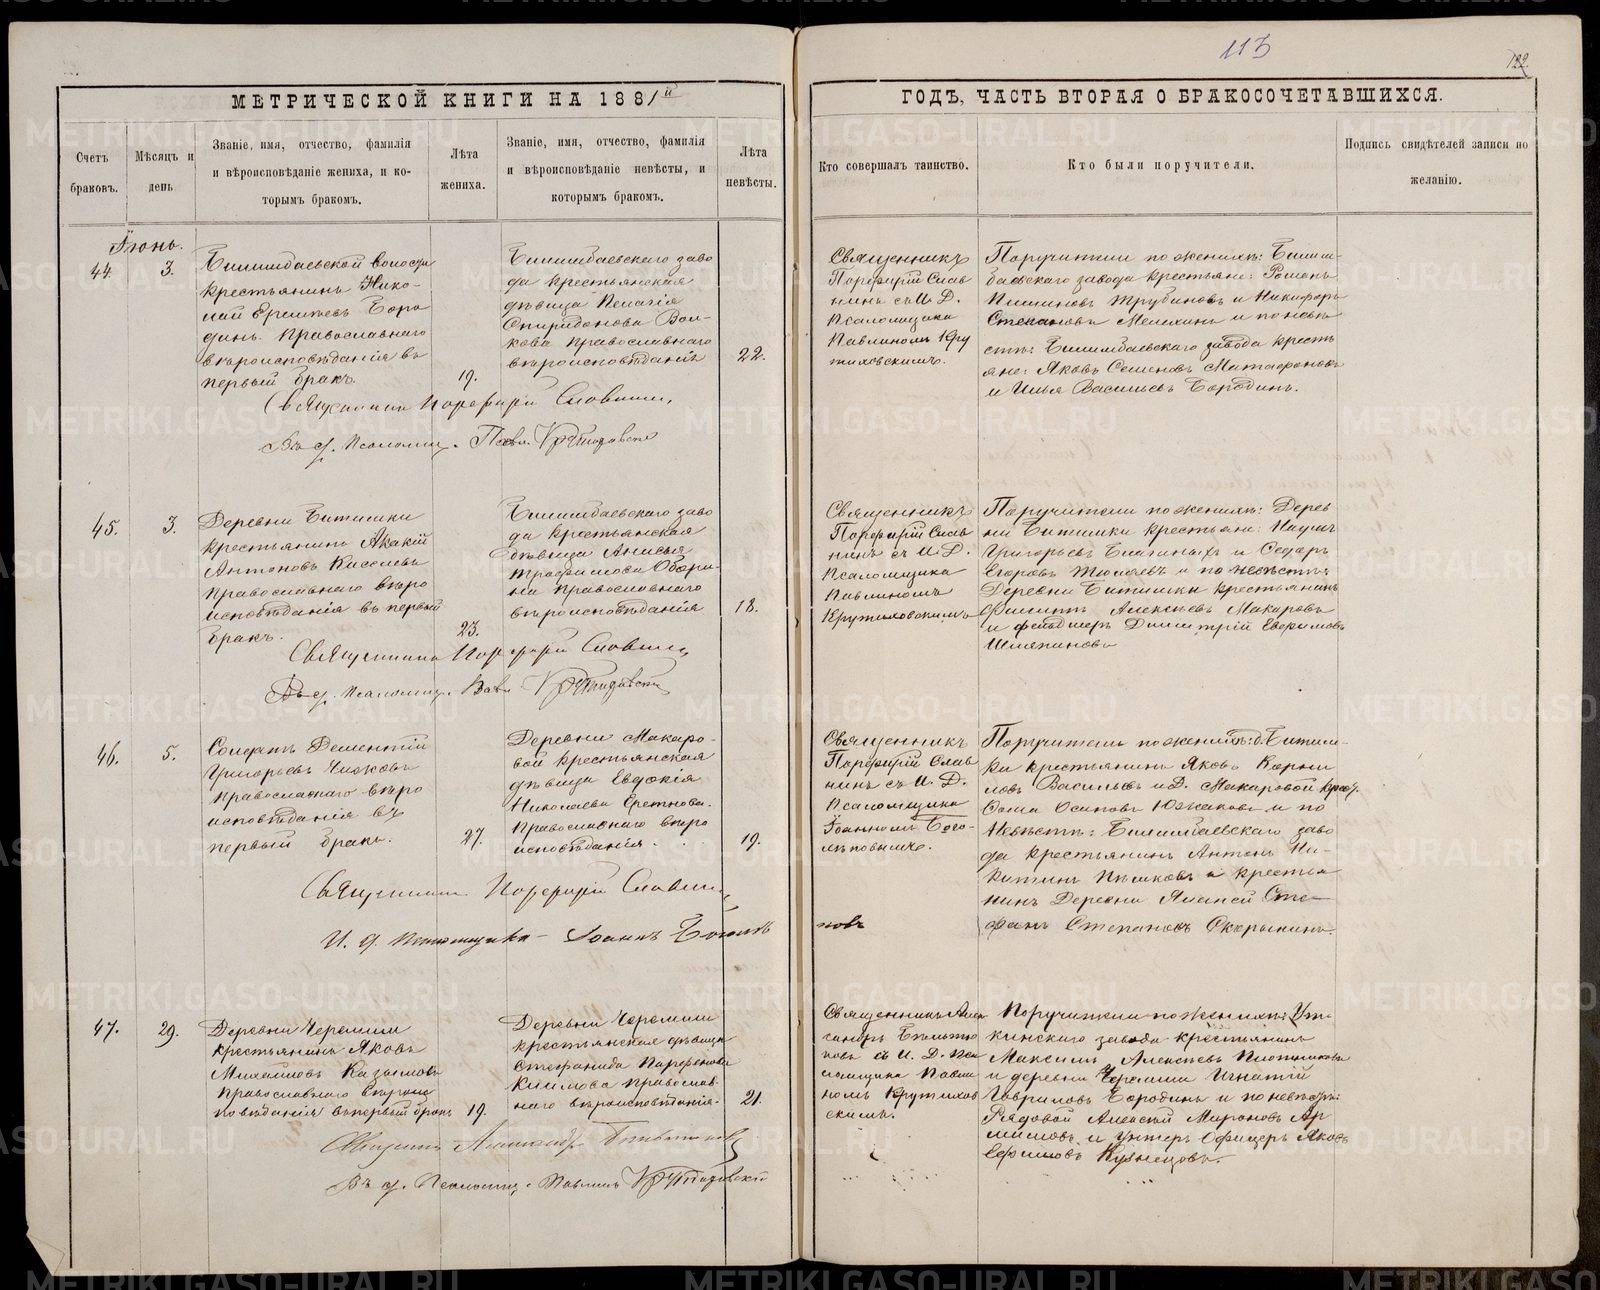 113
122.
МЕТРИЧЕСКОЙ КНИГИ НА 1881й
ГОДЪ, ЧАСТЬ ВТОРАЯ О БРАКОСОЧЕТАВШИХСЯ.
Счетъ
браковъ.
Мѣсяцъ и
день
Званіе, имя, отчество, фамилія
и вѣроисповѣданіе жениха, и ко-
торымъ бракомъ.
Лѣта
жениха.
Званіе, имя, отчество, фамилія
и вѣроисповѣданіе невѣсты, и
которымъ бракомъ.
Лѣта
невѣсты.
Кто совершалъ таинство.
Кто были поручители.
Подпись свидѣтелей записи по
желанію.
Іюнь.
44.
3.
Билимбаевской волости
крестьянинъ Нико-
лай Боро
динъ Православнаго
вѣроисповѣданія въ
первый бракъ.
19.
Билимбаевскаго заво
да крестьянская
дѣвица Пелагія
Спиридонова Вол-
кова Православнаго
вѣроисповѣданія
22.
Священникъ
Порфирій Слав
нинъ съ И. Д.
Псаломщика
Павлиномъ Кру
тиховскимъ.
Поручители по женихѣ: Билим-
баевскаго завода крестьяне: Романъ
Трубиновъ и Никифоръ
Степановъ Мелехинъ и по невѣ
стѣ: Билимбаевскаго завода кресть
яне: Яковъ Семеновъ Матафоновъ
и Илья Васильевъ Бородинъ.
Священникъ Порфирій Славнинъ,
Въ д. Псаломщ. Павл. Крутиховскій
45.
3.
Деревни Битимки
крестьянинъ Акакій
Антоновъ Киселевъ
Православнаго вѣро
исповѣданія въ первый
бракъ.
23.
Билимбаевскаго заво
да крестьянская
дѣвица Анисья
Трофимова Обори-
на Православнаго
вѣроисповѣданія
18.
Священникъ
Порфирій Слав
нинъ съ И. Д.
Псаломщика
Павлиномъ
Крутиховскимъ
Поручители по женихѣ: Дерев
ни Битимки крестьяне: Наумъ
Григорьевъ и Федоръ
Егоровъ и по невѣстѣ:
Деревни Битимки крестьянинъ
Филиппъ Алексѣевъ Макаровъ
и фельдшеръ Димитрій Евфимовъ
Шляпиновъ
Священникъ Порфирій Славнинъ
Въ д. Псаломщ. Павл. Крутиховскій
46.
5.
Солдатъ Дементій
Григорьевъ Чижовъ
Православнаго вѣро
исповѣданія въ
первый бракъ.
27.
Деревни Макаро-
вой крестьянская
дѣвица Евдокія
Николаева
Православнаго вѣро
исповѣданія.
19.
Священникъ
Порфирій Слав
нинъ съ И. Д.
Псаломщика
Іоанномъ Бого-
лѣповымъ.
Поручители по женихѣ: д. Битим-
ки крестьянинъ Яковъ Корни
ловъ Васильевъ и Д. Макаровой крест.
Фома Осиповъ Южаковъ и по
невѣстѣ: Билимбаевскаго заво
да крестьянинъ Антонъ Ни-
китинъ Пѣшковъ и крестья
нинъ Деревни Сте-
фанъ Степановъ
Священникъ Порфирій Славнинъ
И. д. Псаломщика Іоаннъ Боголѣ
повъ
47.
29.
Деревни Черемши
крестьянинъ Яковъ
Михайловъ Казаковъ
Православнаго вѣроис
повѣданія въ первый бракъ
19.
Деревни Черемши
крестьянская дѣвица
Стефанида Парфенова
Климова Православ-
наго вѣроисповѣданія.
21.
Священникъ Алек
сандръ
съ И. Д. Пса
ломщика Павли
номъ Крутихов
скимъ.
Поручители по женихѣ: Ут-
кинскаго завода крестьянинъ
Максимъ Алексѣевъ Плотниковъ
и деревни Черемши Игнатій
Гавриловъ Бородинъ и по невѣстѣ:
Рядовой Алексѣй Мироновъ Ар
и Унтеръ Офицеръ Яковъ
Ефимовъ Кузнецовъ.
Священникъ Александръ
Въ д. Псаломщ. Павлинъ Крутиховскій
METRIKI.GASO-URAL.RU